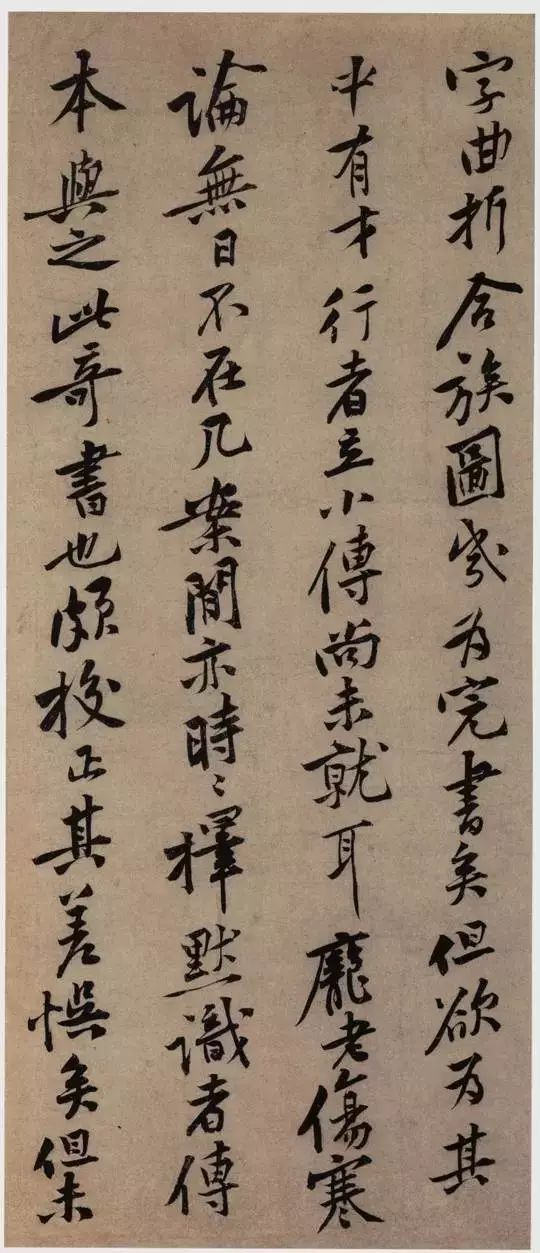 字曲折合族圖㡬为完書矣但欲为其
中有才行者立小傳尚未就耳龐老傷寒
論無日不在几案間亦時〻擇默識者傳
本與之此奇書也頗校正其差悮矣但未